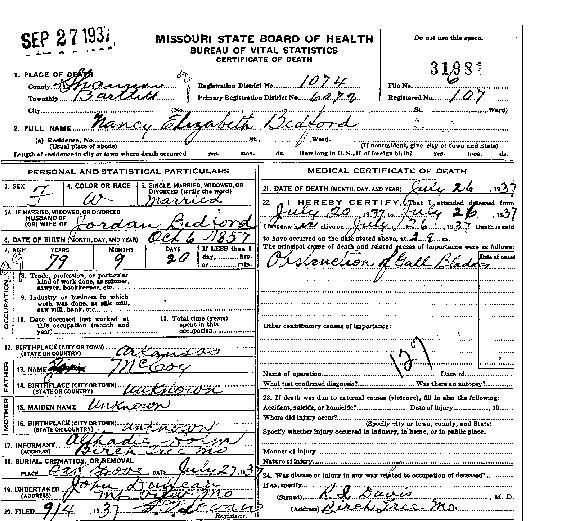 SEP 27 1937
MISSOURI STATE BOARD OF HEALTH
BUREAU OF VITAL STATISTICS
CERTIFICATE OF DEATH
Do not use this space.
1. PLACE OF DEATH
County Shannon Registration District No. 1074 File No.
Township Bartlett Primary Registration District No. Registered No. 107
City (No. St. Ward)
2. FULL NAME Nancy Elizabeth Bedford
(a) Residence, No. St. Ward.
(Usual place of abode) (If nonresident, give city or town and State)
Length of residence in city or town where death occurred yrs. mos. ds. How long in U. S., if of foreign birth? yrs. mos. ds.
PERSONAL AND STATISTICAL PARTICULARS
3. SEX F
4. COLOR OR RACE W
5. SINGLE, MARRIED, WIDOWED, OR DIVORCED (write the word) Married
5A. IF MARRIED, WIDOWED, OR DIVORCED
HUSBAND OF
(OR) WIFE OF Jordan Bedford
6. DATE OF BIRTH (MONTH, DAY, AND YEAR) Oct 6 1857
7. AGE YEARS MONTHS DAYS If LESS than 1
79 9 20 day, hrs.
or min.
OCCUPATION
8. Trade, profession, or particular
kind of work done, as spinner,
sawyer, bookkeeper, etc.
9. Industry or business in which
work was done, as silk mill,
saw mill, bank, etc.
10. Date deceased last worked at
this occupation (month and
year)
11. Total time (years)
spent in this
occupation
12. BIRTHPLACE (CITY OR TOWN)
(STATE OR COUNTRY) Arkansas
FATHER
13. NAME McCoy
14. BIRTHPLACE (CITY OR TOWN)
(STATE OR COUNTRY) Unknown
MOTHER
15. MAIDEN NAME Unknown
16. BIRTHPLACE (CITY OR TOWN)
(STATE OR COUNTRY) Unknown
17. INFORMANT
(ADDRESS) Birch Tree Mo
18. BURIAL, CREMATION, OR REMOVAL
PLACE Grove DATE July 27 1937
19. UNDERTAKER John Duncan
(ADDRESS) Mt View Mo
20. FILED 9/4 1937
Registrar.
MEDICAL CERTIFICATE OF DEATH
21. DATE OF DEATH (MONTH, DAY, AND YEAR) July 26 1937
22. I HEREBY CERTIFY, That I attended deceased from
July 20 1937, to July 26 1937
I last saw alive on July 26 1937 Death is said
to have occurred on the date stated above, at m.
The principal cause of death and related causes of importance were as follows:
Date of onset
Obstruction of Gall Bladder
Other contributory causes of importance:
127
Name of operation Date of
What test confirmed diagnosis? Was there an autopsy?
23. If death was due to external causes (violence), fill in also the following:
Accident, suicide, or homicide? Date of injury 19
Where did injury occur?
(Specify city or town, county, and State)
Specify whether injury occurred in industry, in home, or in public place.
Manner of injury
Nature of injury
24. Was disease or injury in any way related to occupation of deceased?
If so, specify
(Signed) Davis M. D.
(Address) Birch Tree Mo.